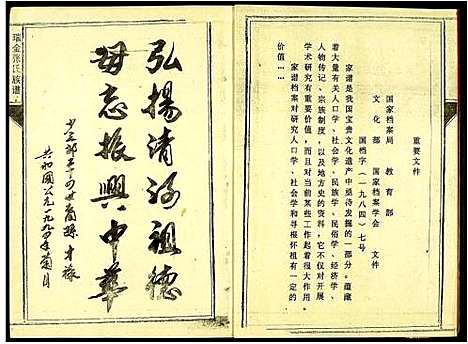 重要文件
国家档案局 教育部
文化部 国家档案学会 文件
国档字(一九八四)七号
家谱是我国宝贵文化遗产中亟待发掘的一部分。蕴藏
着大量有关人口学、社会学、民族学、民俗学、经济学、
人物传记、宗族制度，以及地方史的资料，它不仅对开展
学术研究有重要价值，而且对当前某些工作起着很大作用
家谱档案对研究人口学、社会学和寻根怀祖有一定的
价值……
弘揚清河祖德
毋忘振興中華
共和國公元一九九四年菊月
瑞金张氏族谱